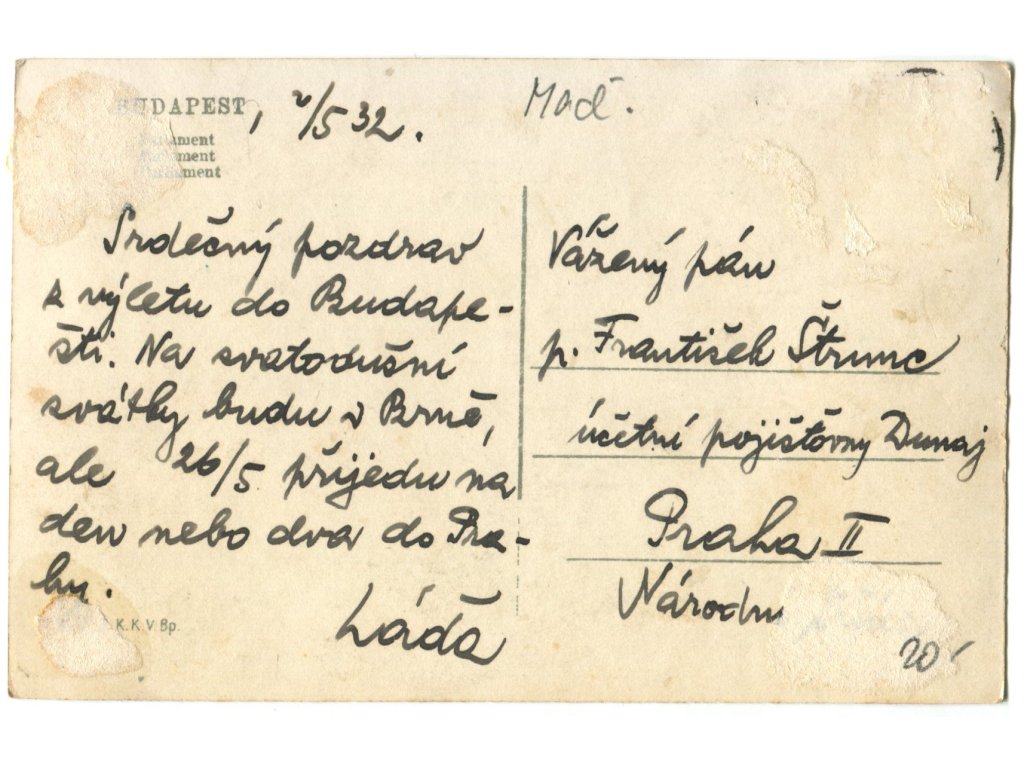 BUDAPEST, 2/5 32.
Mad.
Parlament
Parlament
Parlament
Srdečný pozdrav
z výletu do Budape-
šti. Na svatodušní
svátky budu v Brně,
ale 26/5 přijedu na
den nebo dva do Pra-
hy.
Láďa
K.K.V.Bp.
Vážený pán
p. František Štrunc
účetní pojišťovny Dunaj
Praha II
Národní
20